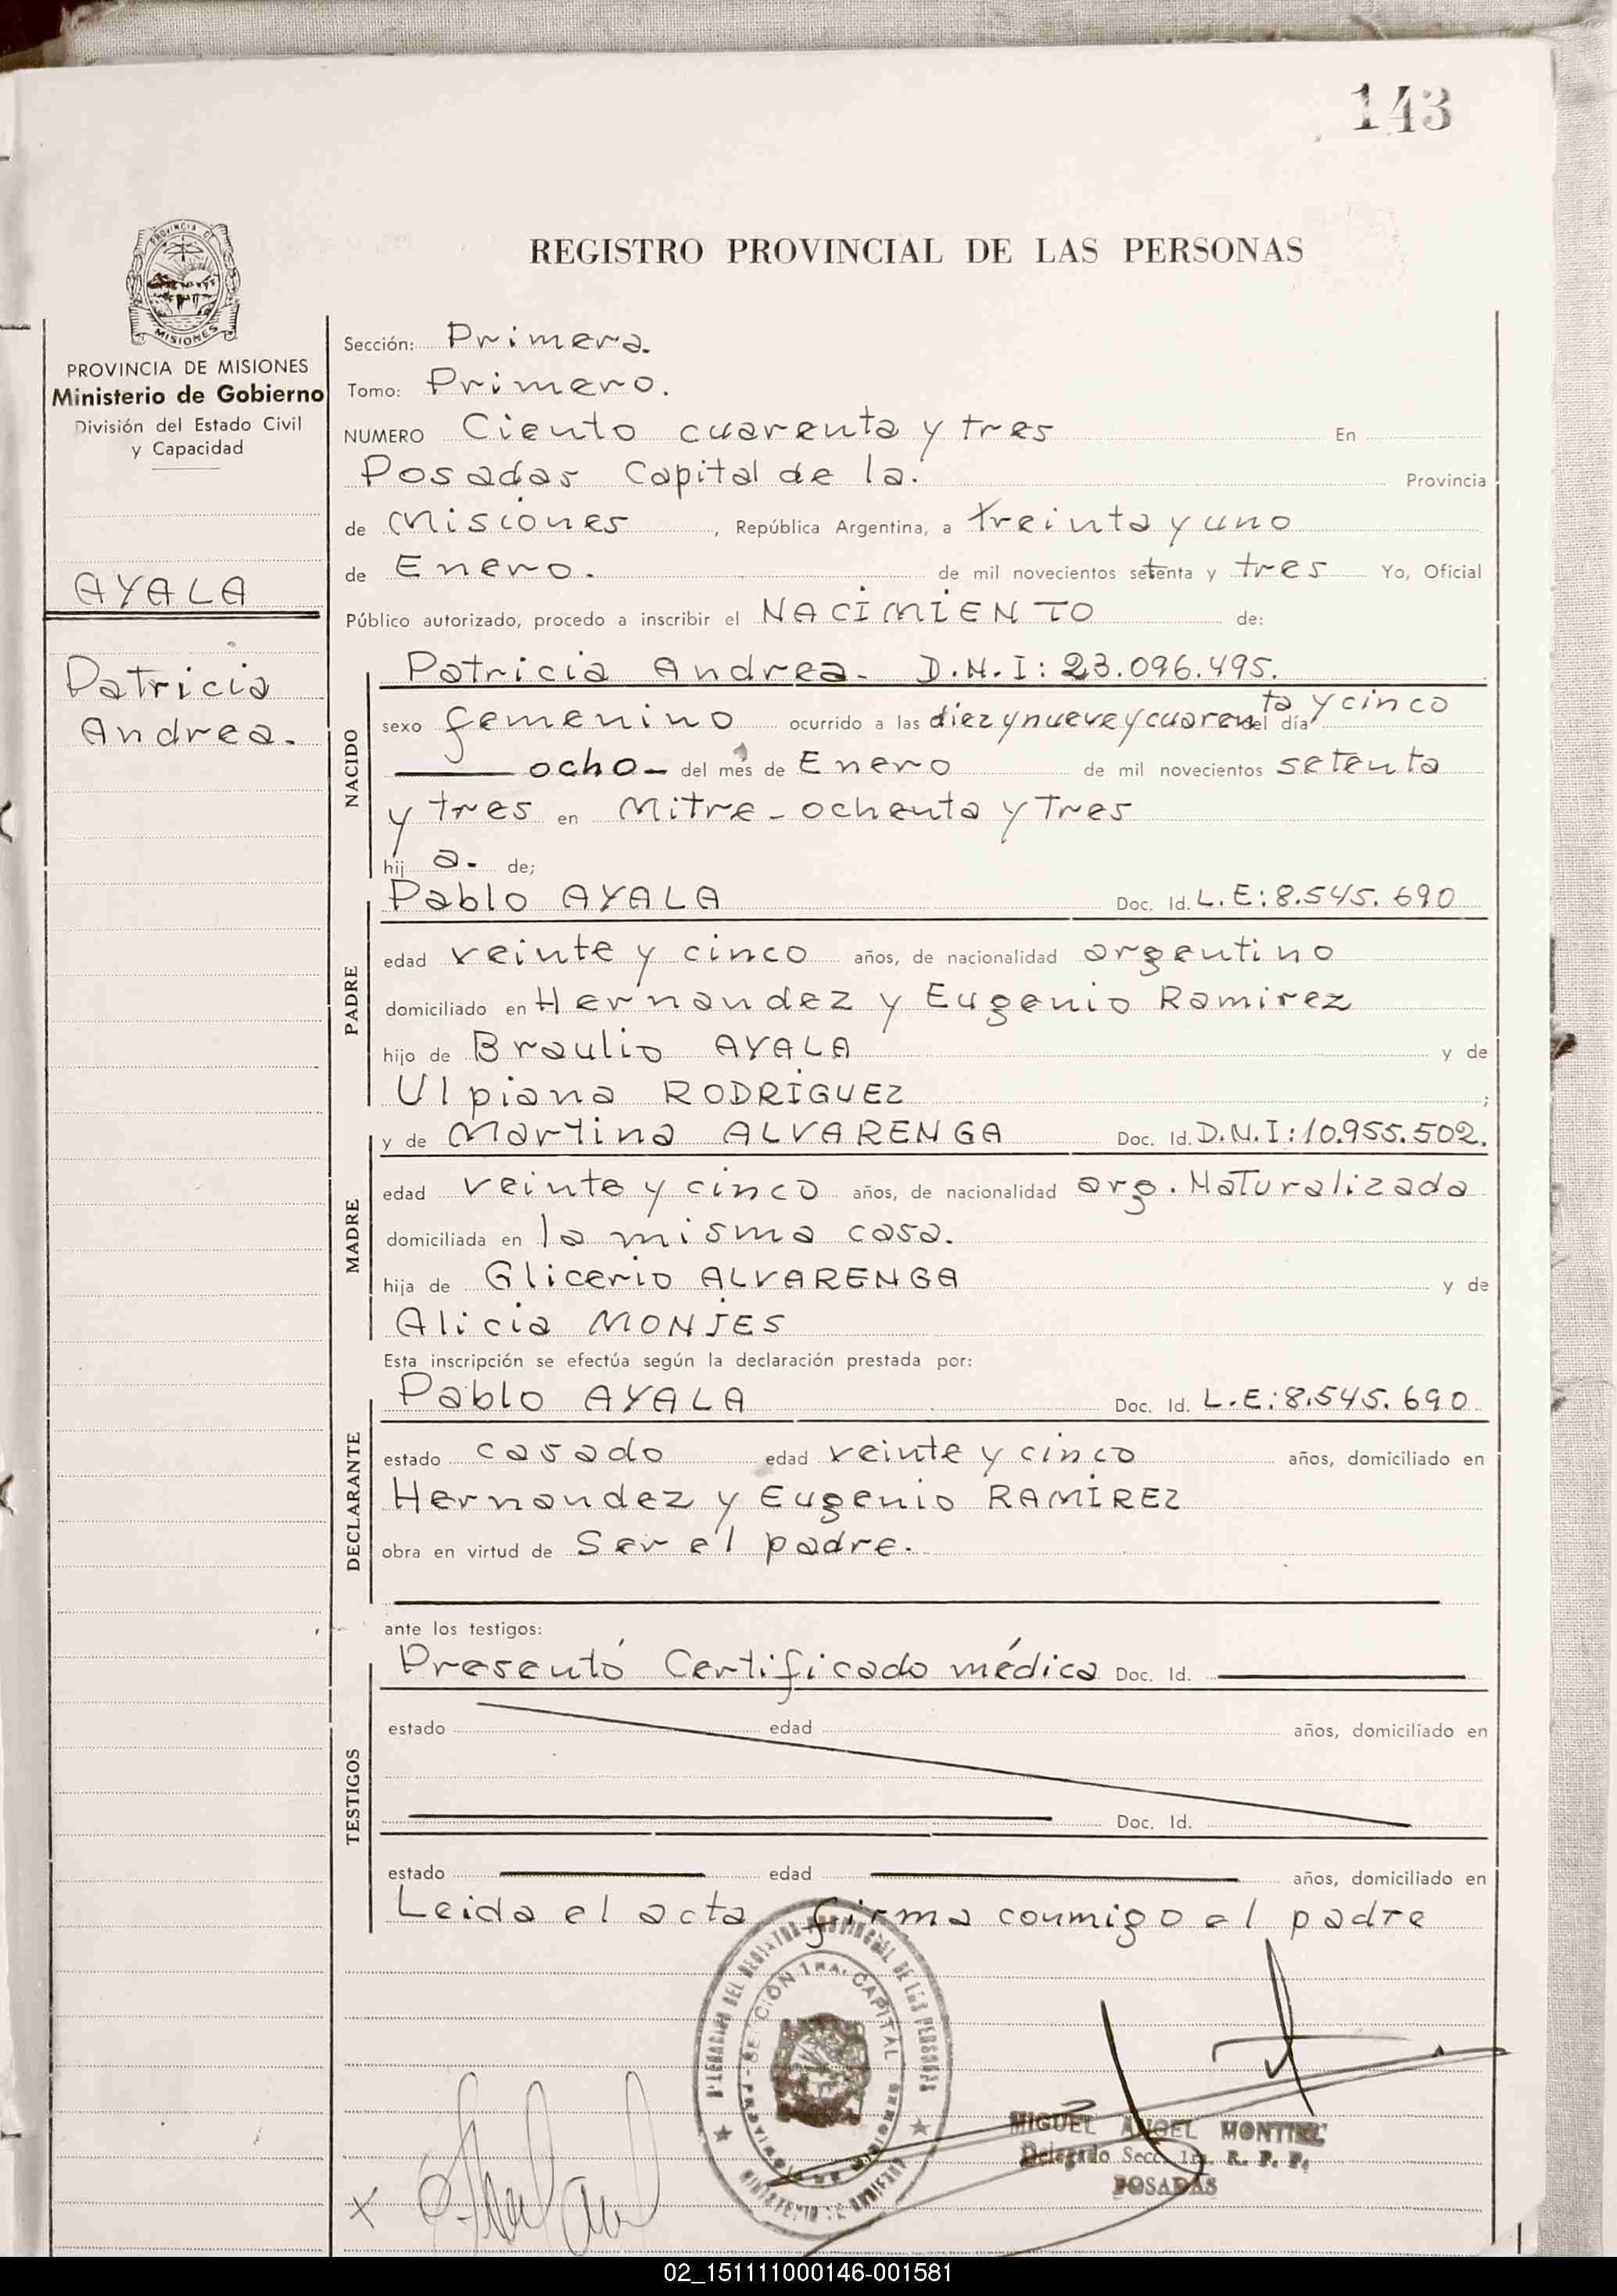 143
REGISTRO PROVINCIAL DE LAS PERSONAS
PROVINCIA DE
MISIONES
PROVINCIA DE MISIONES
Ministerio de Gobierno
División del Estado Civil
y Capacidad
AYALA
Patricia
Andrea.
Sección: Primera.
Tomo: Primero.
NUMERO Ciento cuarenta y tres En
Posadas Capital de la. Provincia
de Misiones, República Argentina, a treinta y uno
de Enero. de mil novecientos setenta y tres Yo, Oficial
Público autorizado, procedo a inscribir el NACIMIENTO de:
NACIDO
Patricia Andrea. D.N.I: 23.096.495.
sexo femenino ocurrido a las diez y nueve y cuarenta y cinco del día
ocho- del mes de Enero de mil novecientos setenta
y tres en Mitre - ochenta y tres
hij a. de;
PADRE
Pablo AYALA Doc. Id. L.E: 8.545.690
edad veinte y cinco años, de nacionalidad argentino
domiciliado en Hernandez y Eugenio Ramirez
hijo de Braulio AYALA y de
Ulpiana RODRIGUEZ ;
MADRE
y de Martina ALVARENGA Doc. Id. D.N.I: 10.955.502.
edad veinte y cinco años, de nacionalidad arg. Naturalizada
domiciliada en la misma casa.
hija de Glicerio ALVARENGA y de
Alicia MONJES
Esta inscripción se efectúa según la declaración prestada por:
DECLARANTE
Pablo AYALA Doc. Id. L.E: 8.545.690
estado casado edad veinte y cinco años, domiciliado en
Hernandez y Eugenio RAMIREZ
obra en virtud de Ser el padre.
ante los testigos:
TESTIGOS
Presentó Certificado médica Doc. Id.
estado edad años, domiciliado en
Doc. Id.
estado edad años, domiciliado en
Leida el acta firma conmigo el padre
DEL REGISTRO PROVINCIAL DE LAS PERSONAS
SECCIÓN 1RA. CAPITAL
MINISTERIO DE GOBIERNO
MIGUEL ANGEL MONTIEL
Delegado Secc. 1ra. R. P. P.
POSADAS
02_151111000146-001581